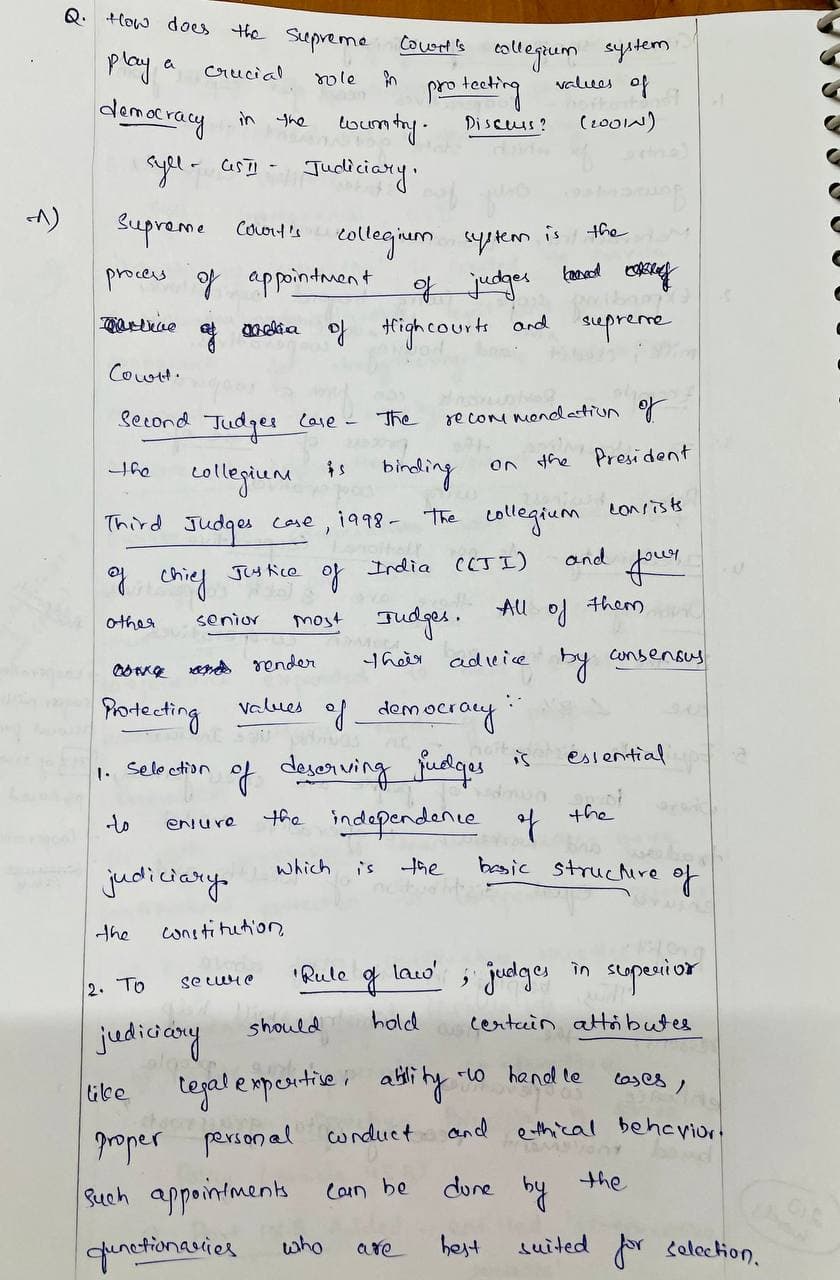 Q. How does the Supreme Court's collegium system
play a crucial role in protecting values of
democracy in the country. Discuss? (200W)
Syll - GS II - Judiciary.
A) Supreme Court's collegium system is the
process of appointment of judges
of High courts and supreme
Court.
Second Judges Case - The recommendation of
the collegium is binding on the President
Third Judges case, 1998 - The collegium consists
of Chief Justice of India (CJI) and four
other senior most Judges. All of them
render their advice by consensus
Protecting values of democracy :-
1. Selection of deserving judges is essential
to ensure the independence of the
judiciary which is the basic structure of
the constitution.
2. To secure 'Rule of law' ; judges in superior
judiciary should hold certain attributes
like legal expertise, ability to handle cases,
proper personal conduct and ethical behavior.
Such appointments can be done by the
functionaries who are best suited for selection.